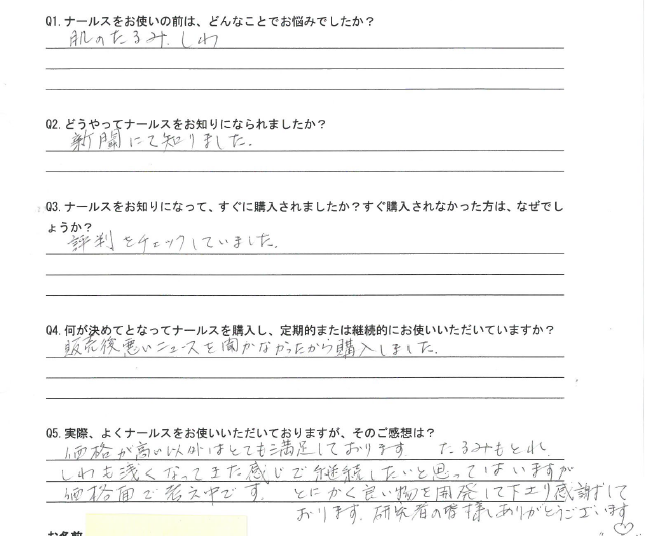 Q1. ナールスをお使いの前は、どんなことでお悩みでしたか?
肌のたるみ、しわ
Q2. どうやってナールスをお知りになられましたか?
新聞にて知りました。
Q3. ナールスをお知りになって、すぐに購入されましたか?すぐ購入されなかった方は、なぜでし
ょうか?
評判をチェックしていました。
Q4. 何が決めてとなってナールスを購入し、定期的または継続的にお使いいただいていますか?
販売後悪いニュースを聞かなかったから購入しました。
Q5. 実際、よくナールスをお使いいただいておりますが、そのご感想は?
価格が高い以外はとても満足しております たるみもとれ、
しわも浅くなってきた感じで継続したいと思ってはいますが
価格面で考え中です。 とにかく良い物を開発して下さり感謝して
おります。研究者の皆様ありがとうございます♡
お名前